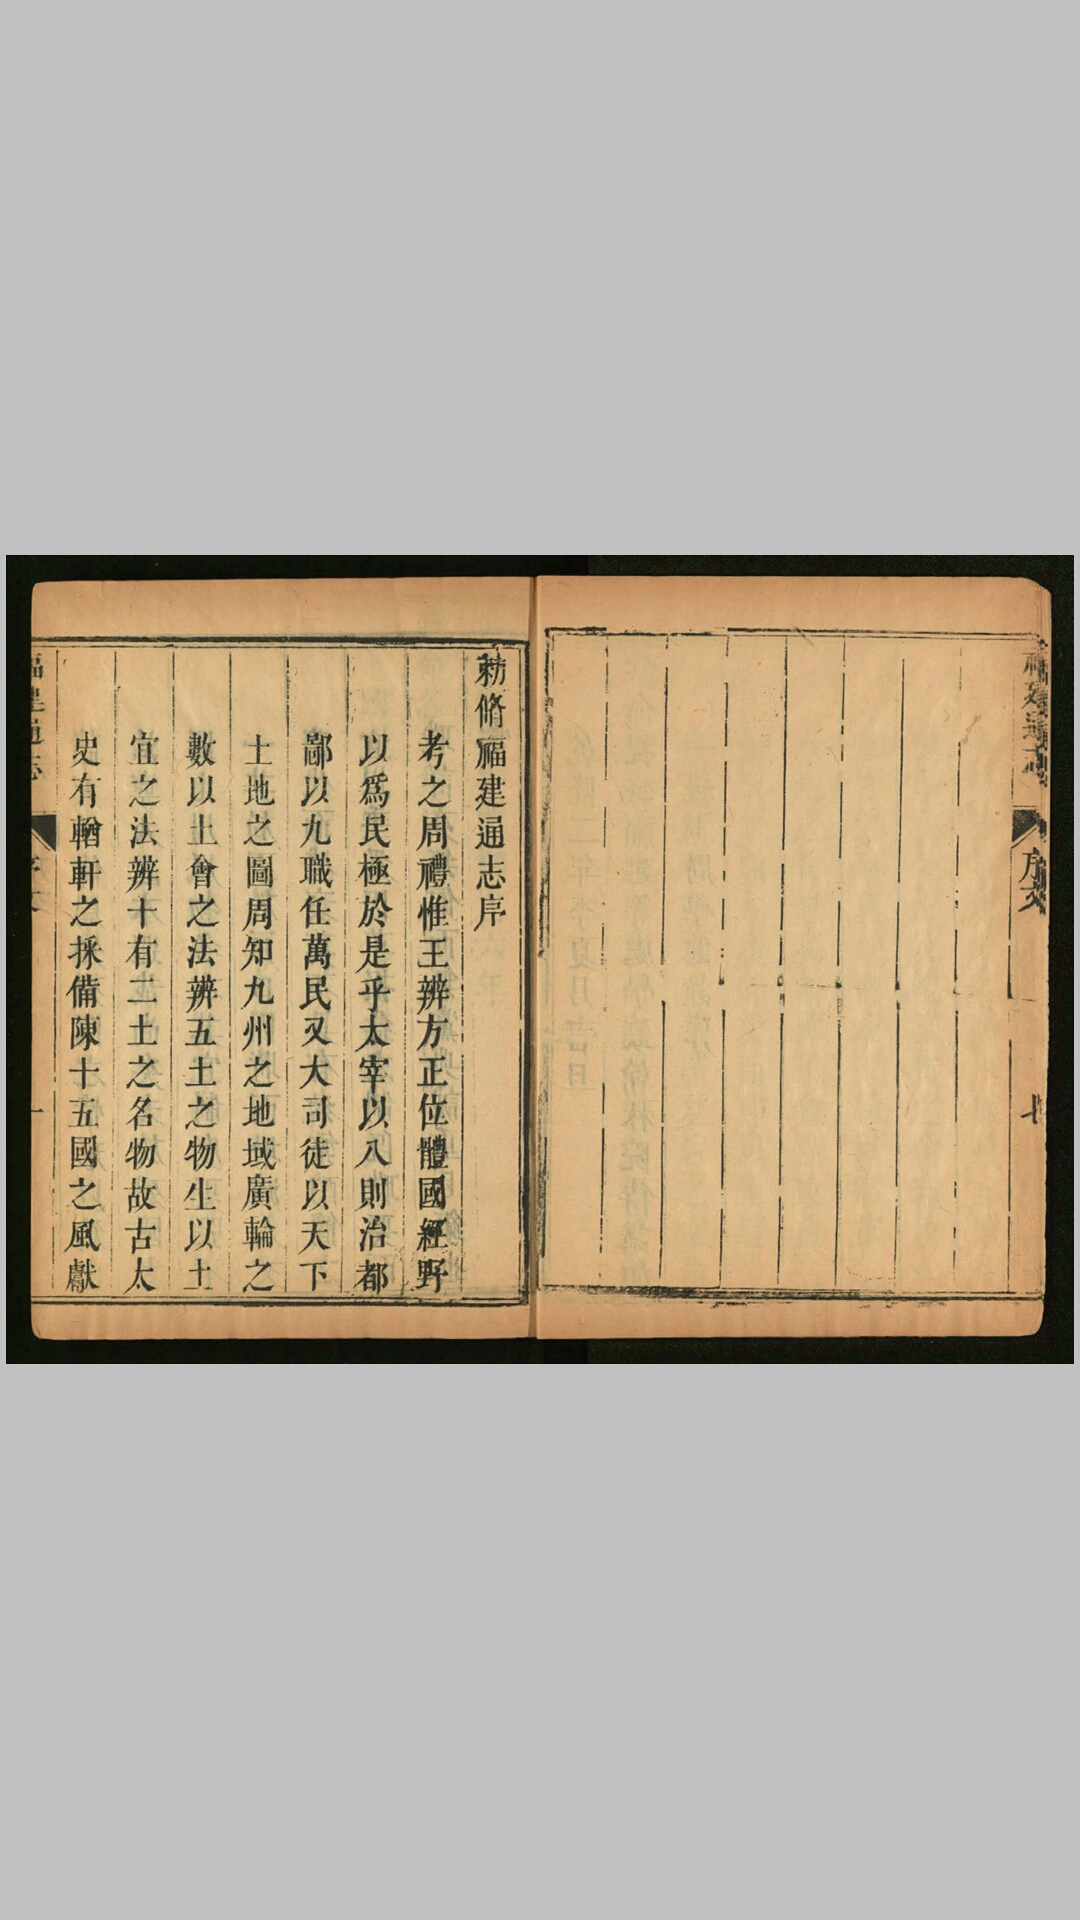 福建通志
序文
七
勅脩福建通志序
考之周禮惟王辨方正位體國經野
以爲民極於是乎太宰以八則治都
鄙以九職任萬民又大司徒以天下
土地之圖周知九州之地域廣輪之
數以土會之法辨五土之物生以土
宜之法辨十有二土之名物故古太
史有輶軒之採備陳十五國之風獻
福建通志
序文
一